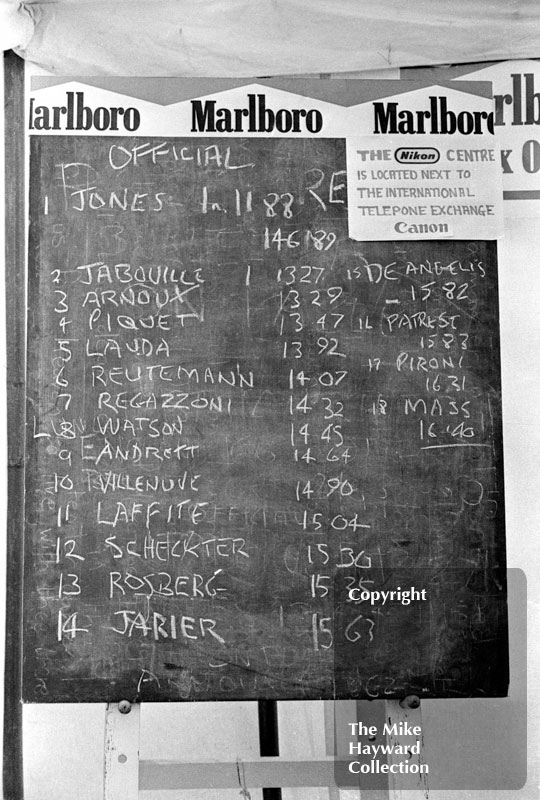 Marlboro Marlboro Marlboro
OFFICIAL
THE Nikon CENTRE
IS LOCATED NEXT TO
THE INTERNATIONAL
TELEPONE EXCHANGE
Canon
1 JONES 1m 11 88
146 89
2 JABOUILLE 1 13 27
3 ARNOUX 13 29
4 PIQUET 13 47
5 LAUDA 13 92
6 REUTEMANN 14 07
7 REGAZZONI 14 32
8 WATSON 14 45
9 ANDRETT 14 64
10 VILLENUVE 14 90
11 LAFFITE 15 04
12 SCHECKTER 15 30
13 ROSBERG 15 35
14 JARIER 15 63
15 DE ANGELIS
15 82
16 PATRESE
15 83
17 PIRONI
16 31
18 MASS
16 40
Copyright
The Mike
Hayward
Collection